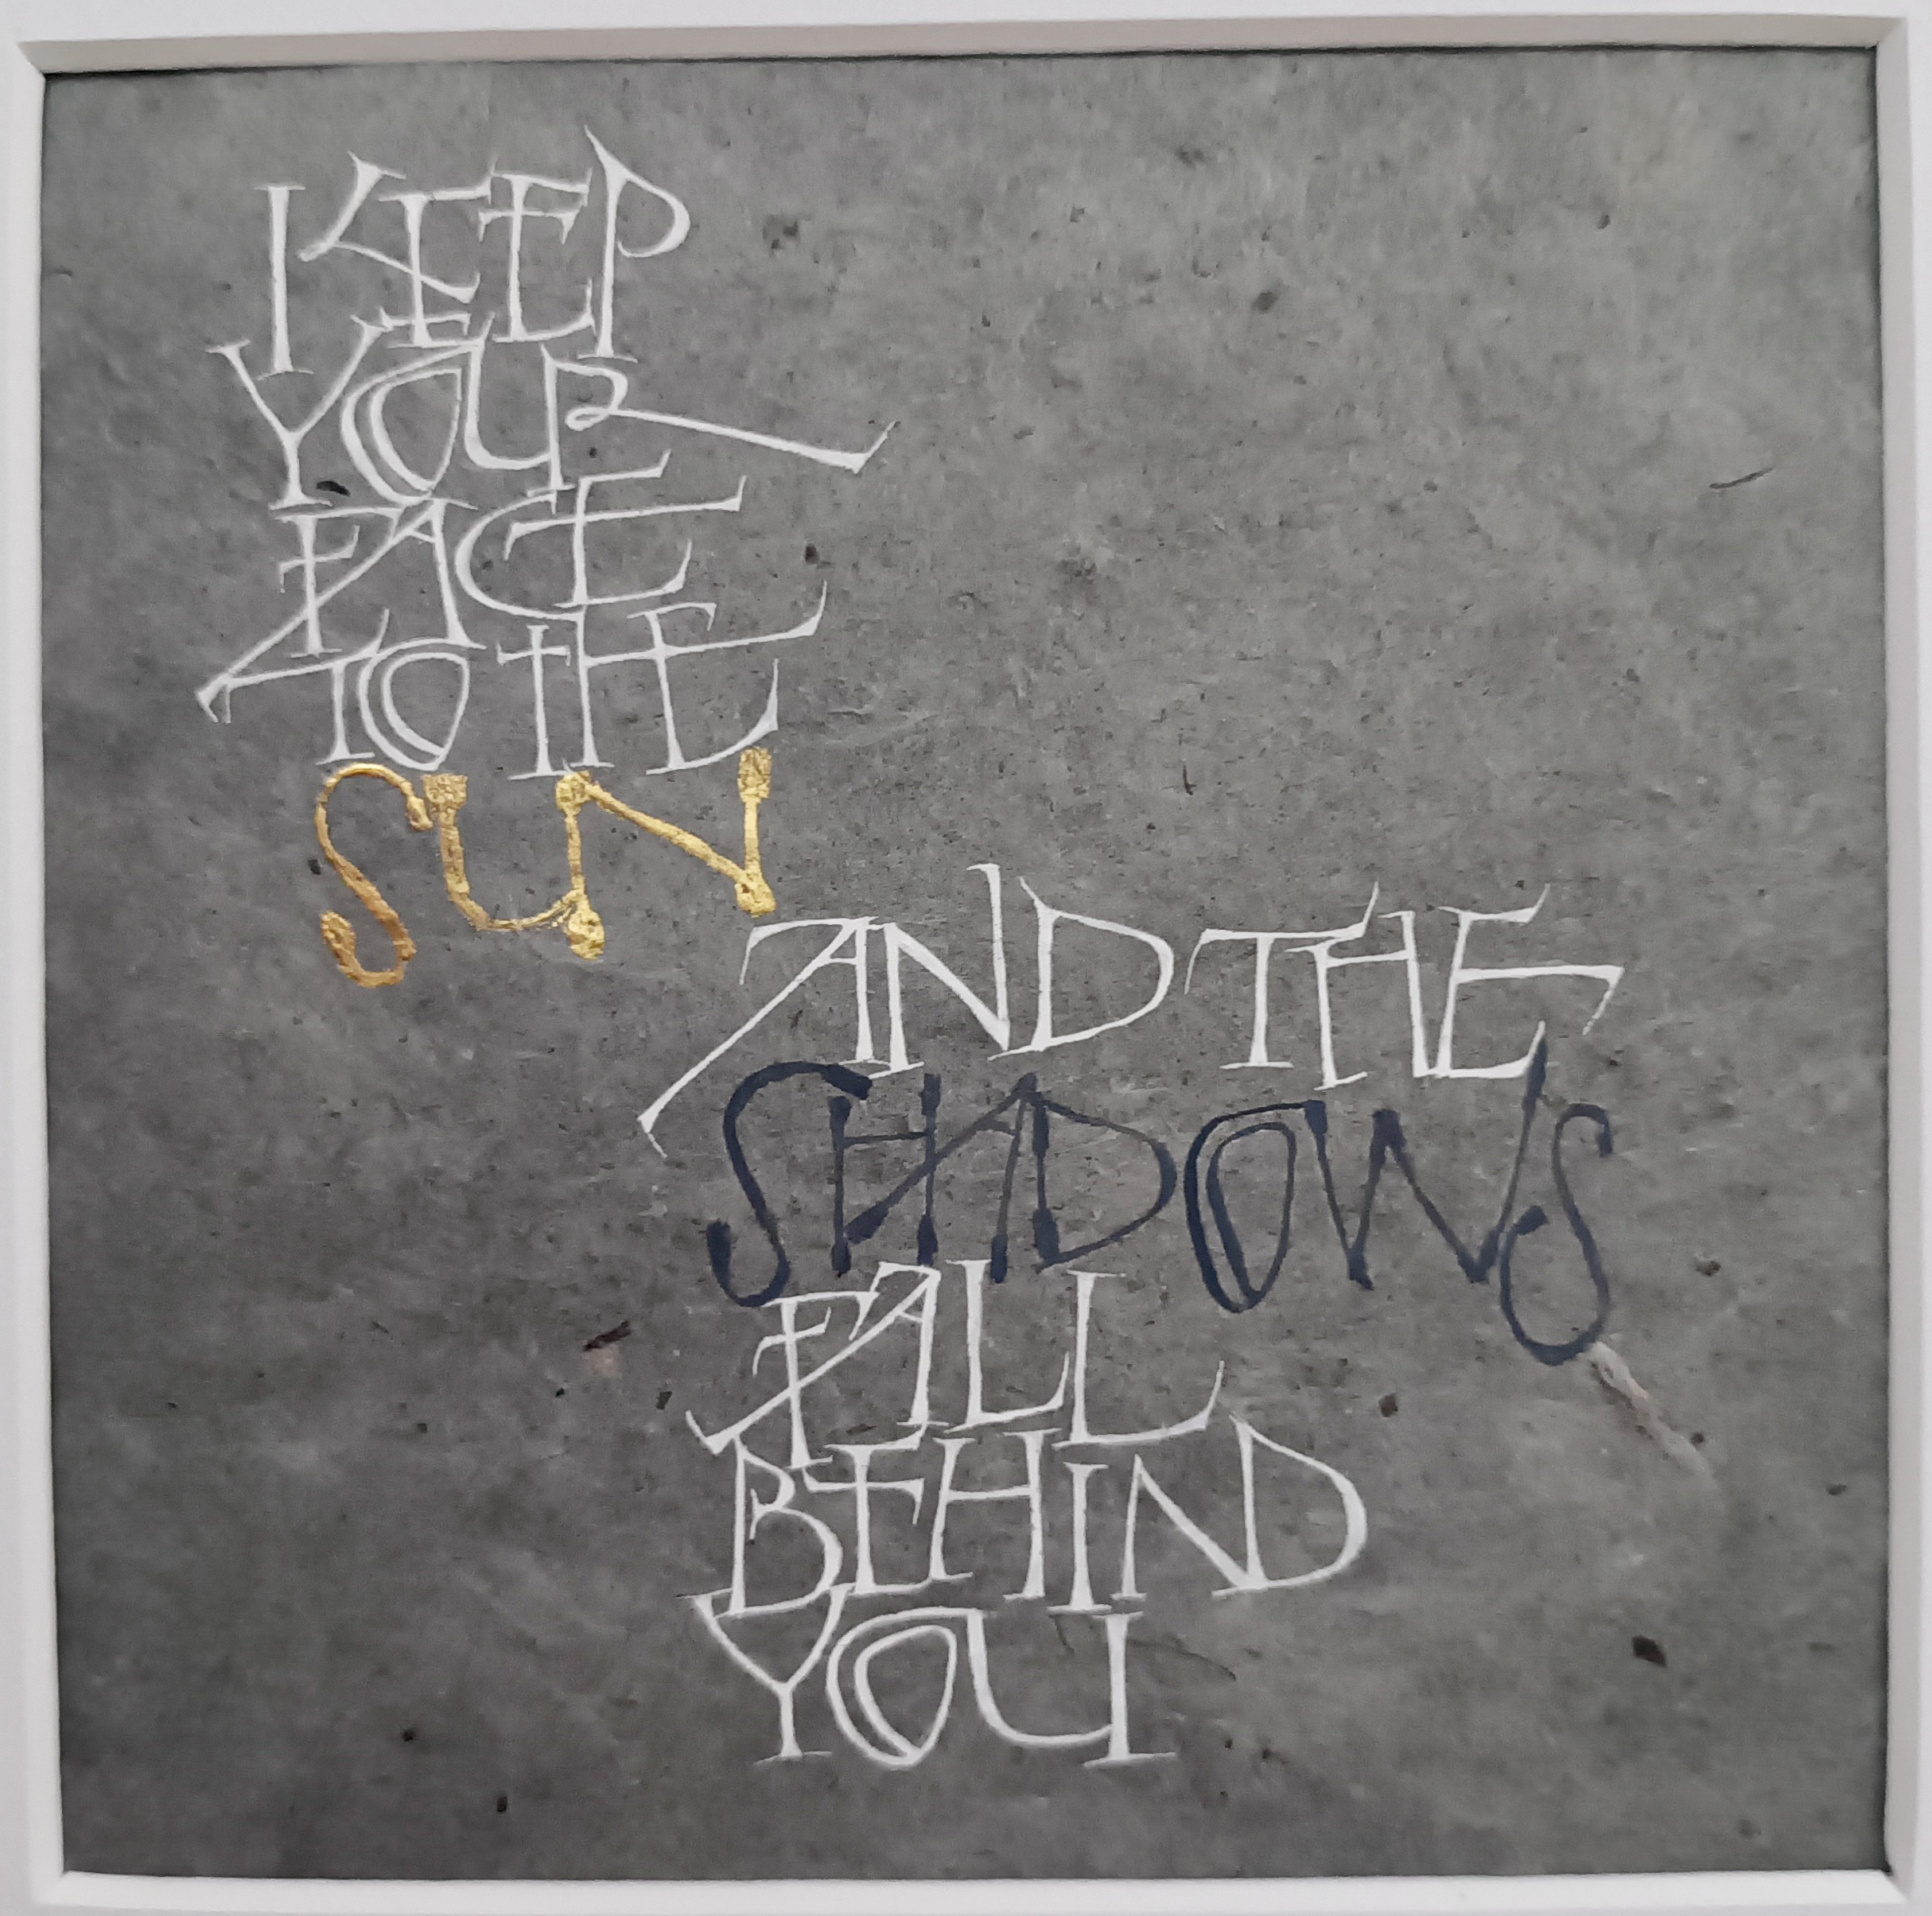 KEEP
YOUR
FACE
TO THE
SUN
AND THE
SHADOWS
FALL
BEHIND
YOU